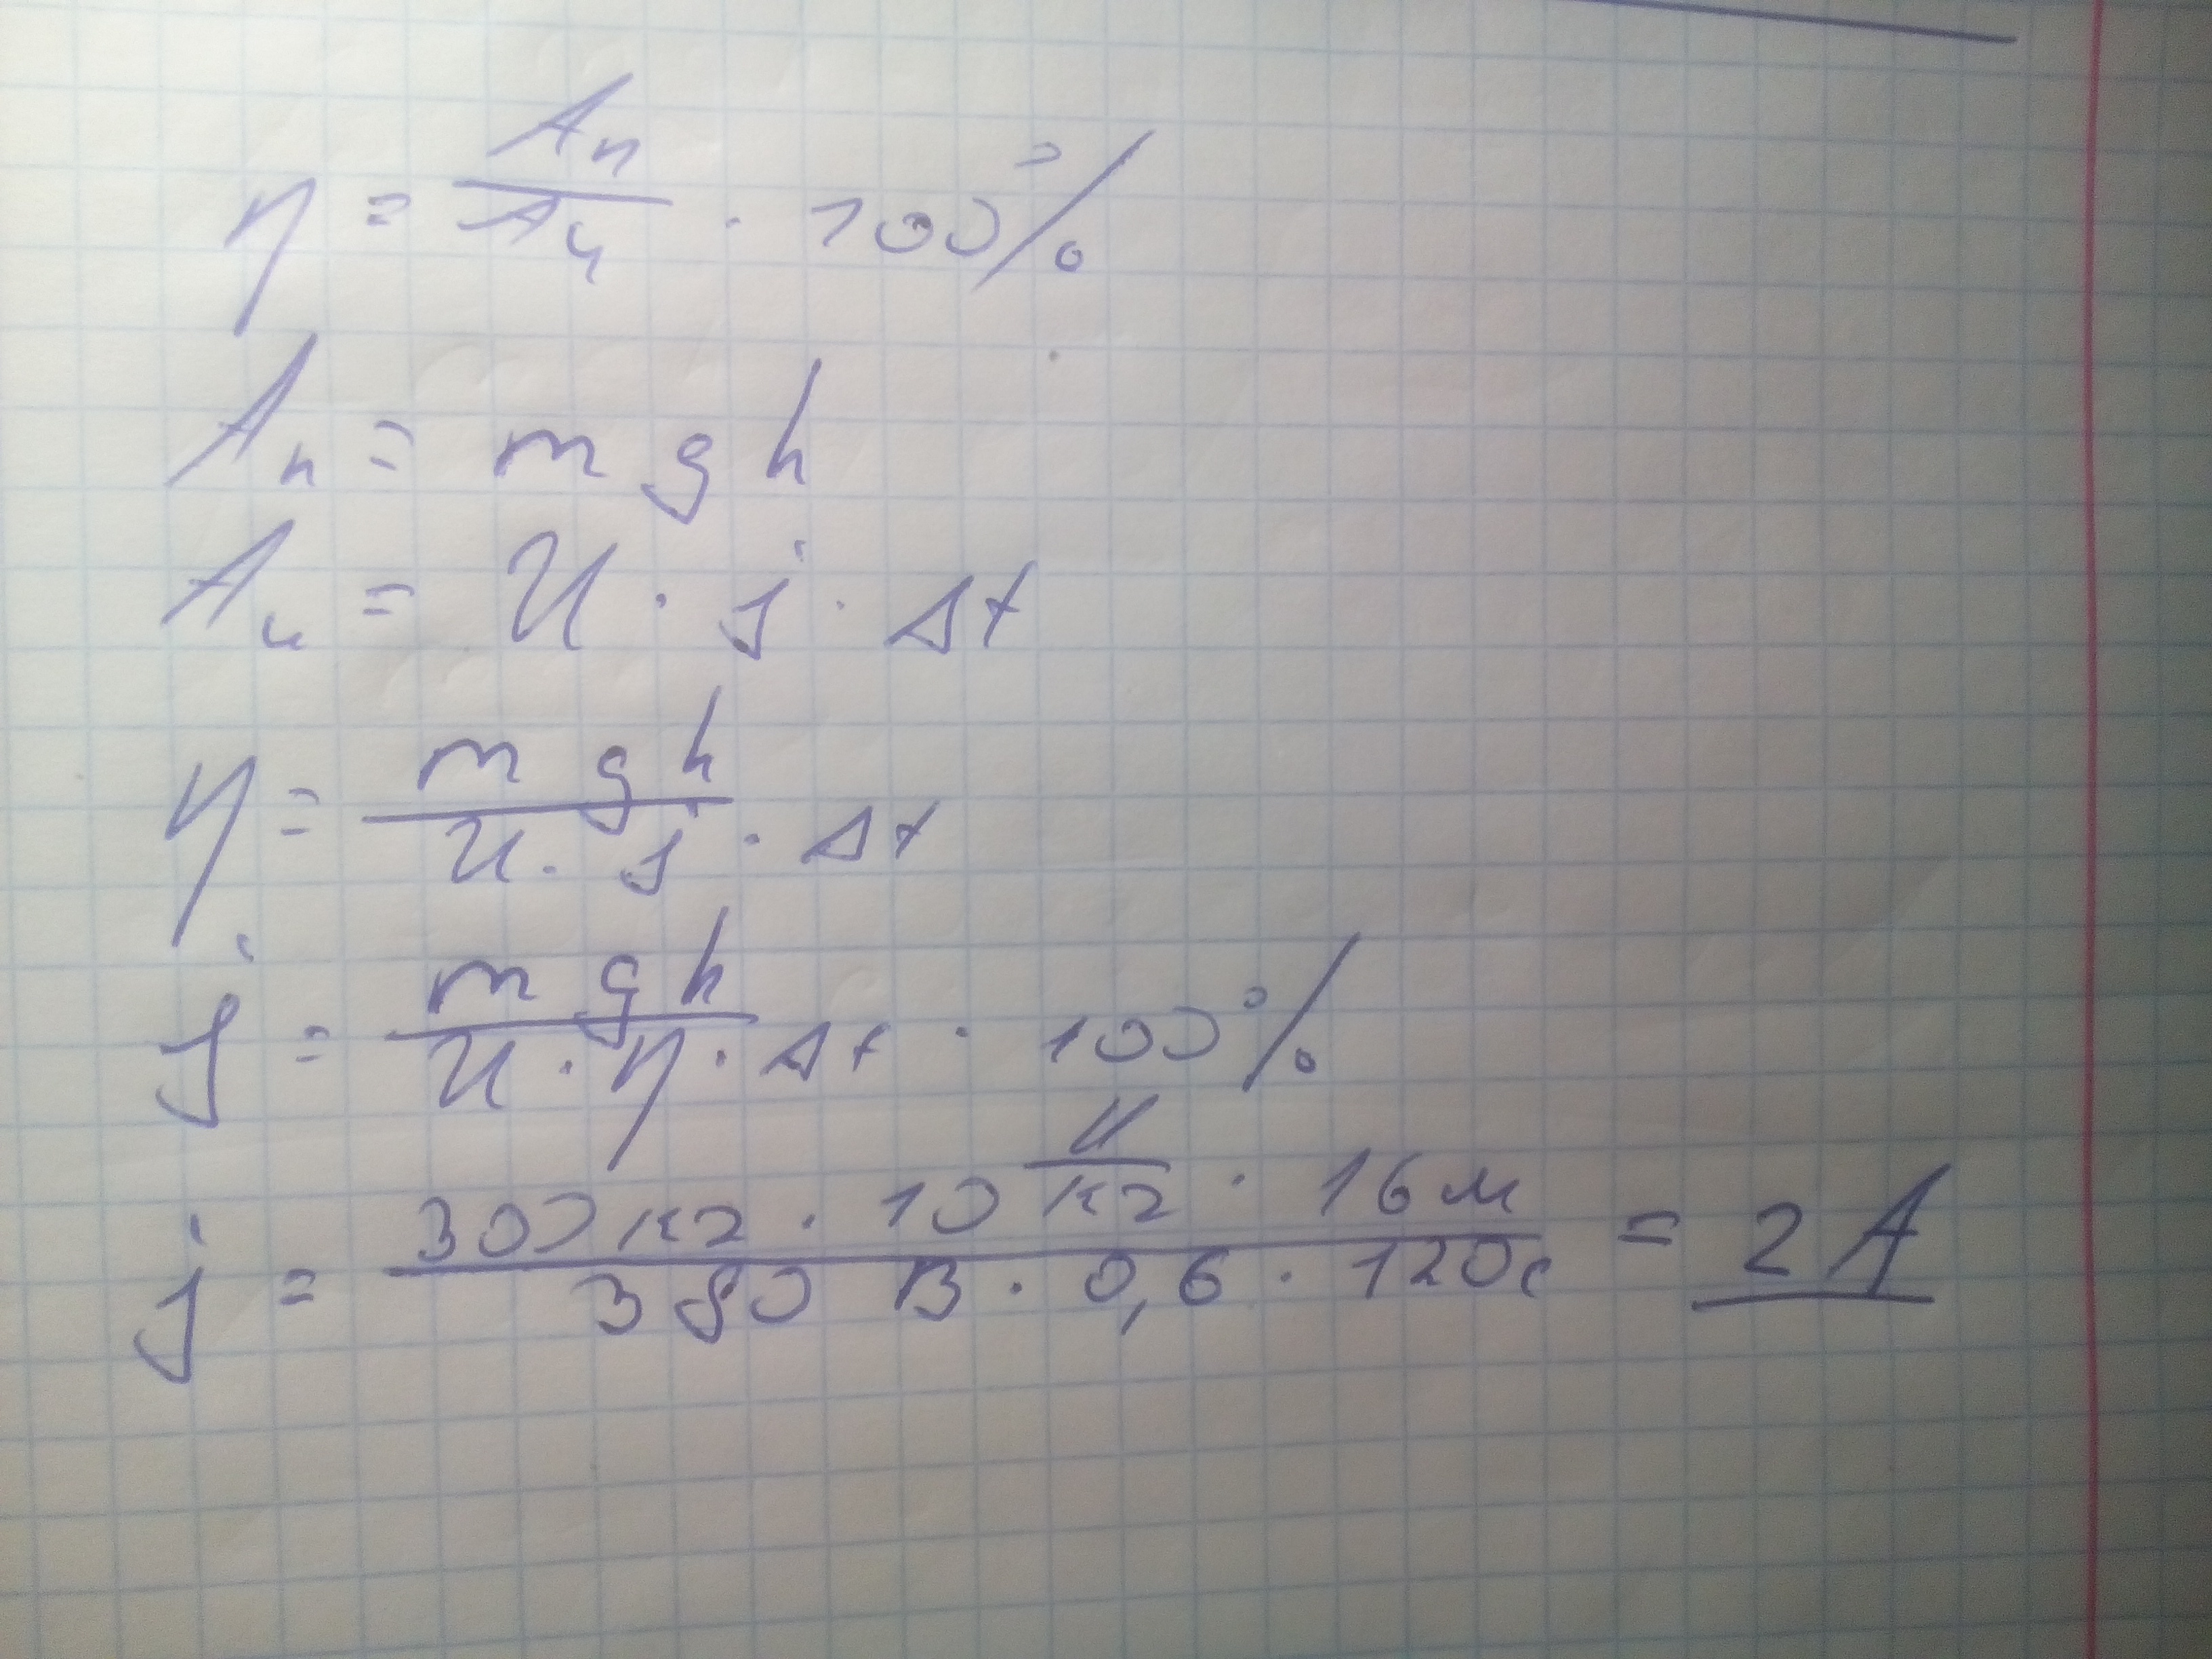 η = Aп/Aч · 100%
Aп = mgh
Aч = U · j · Δt
η = mgh/U · j · Δt
j = mgh/U · η · Δt · 100%
j = 300кг · 10 Н/кг · 16м/380 В · 0,6 · 120с = 2А